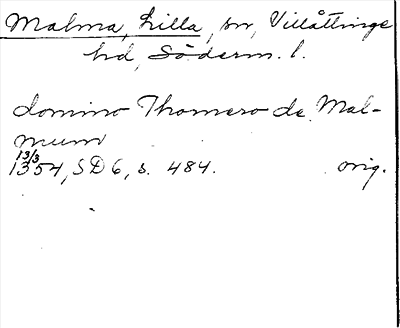 Malma, Lilla, sn, Villåttinge
hd, Söderm. l.
domino Thomero de Mal-
mum
13/3
1354, SD 6, s. 484. orig.